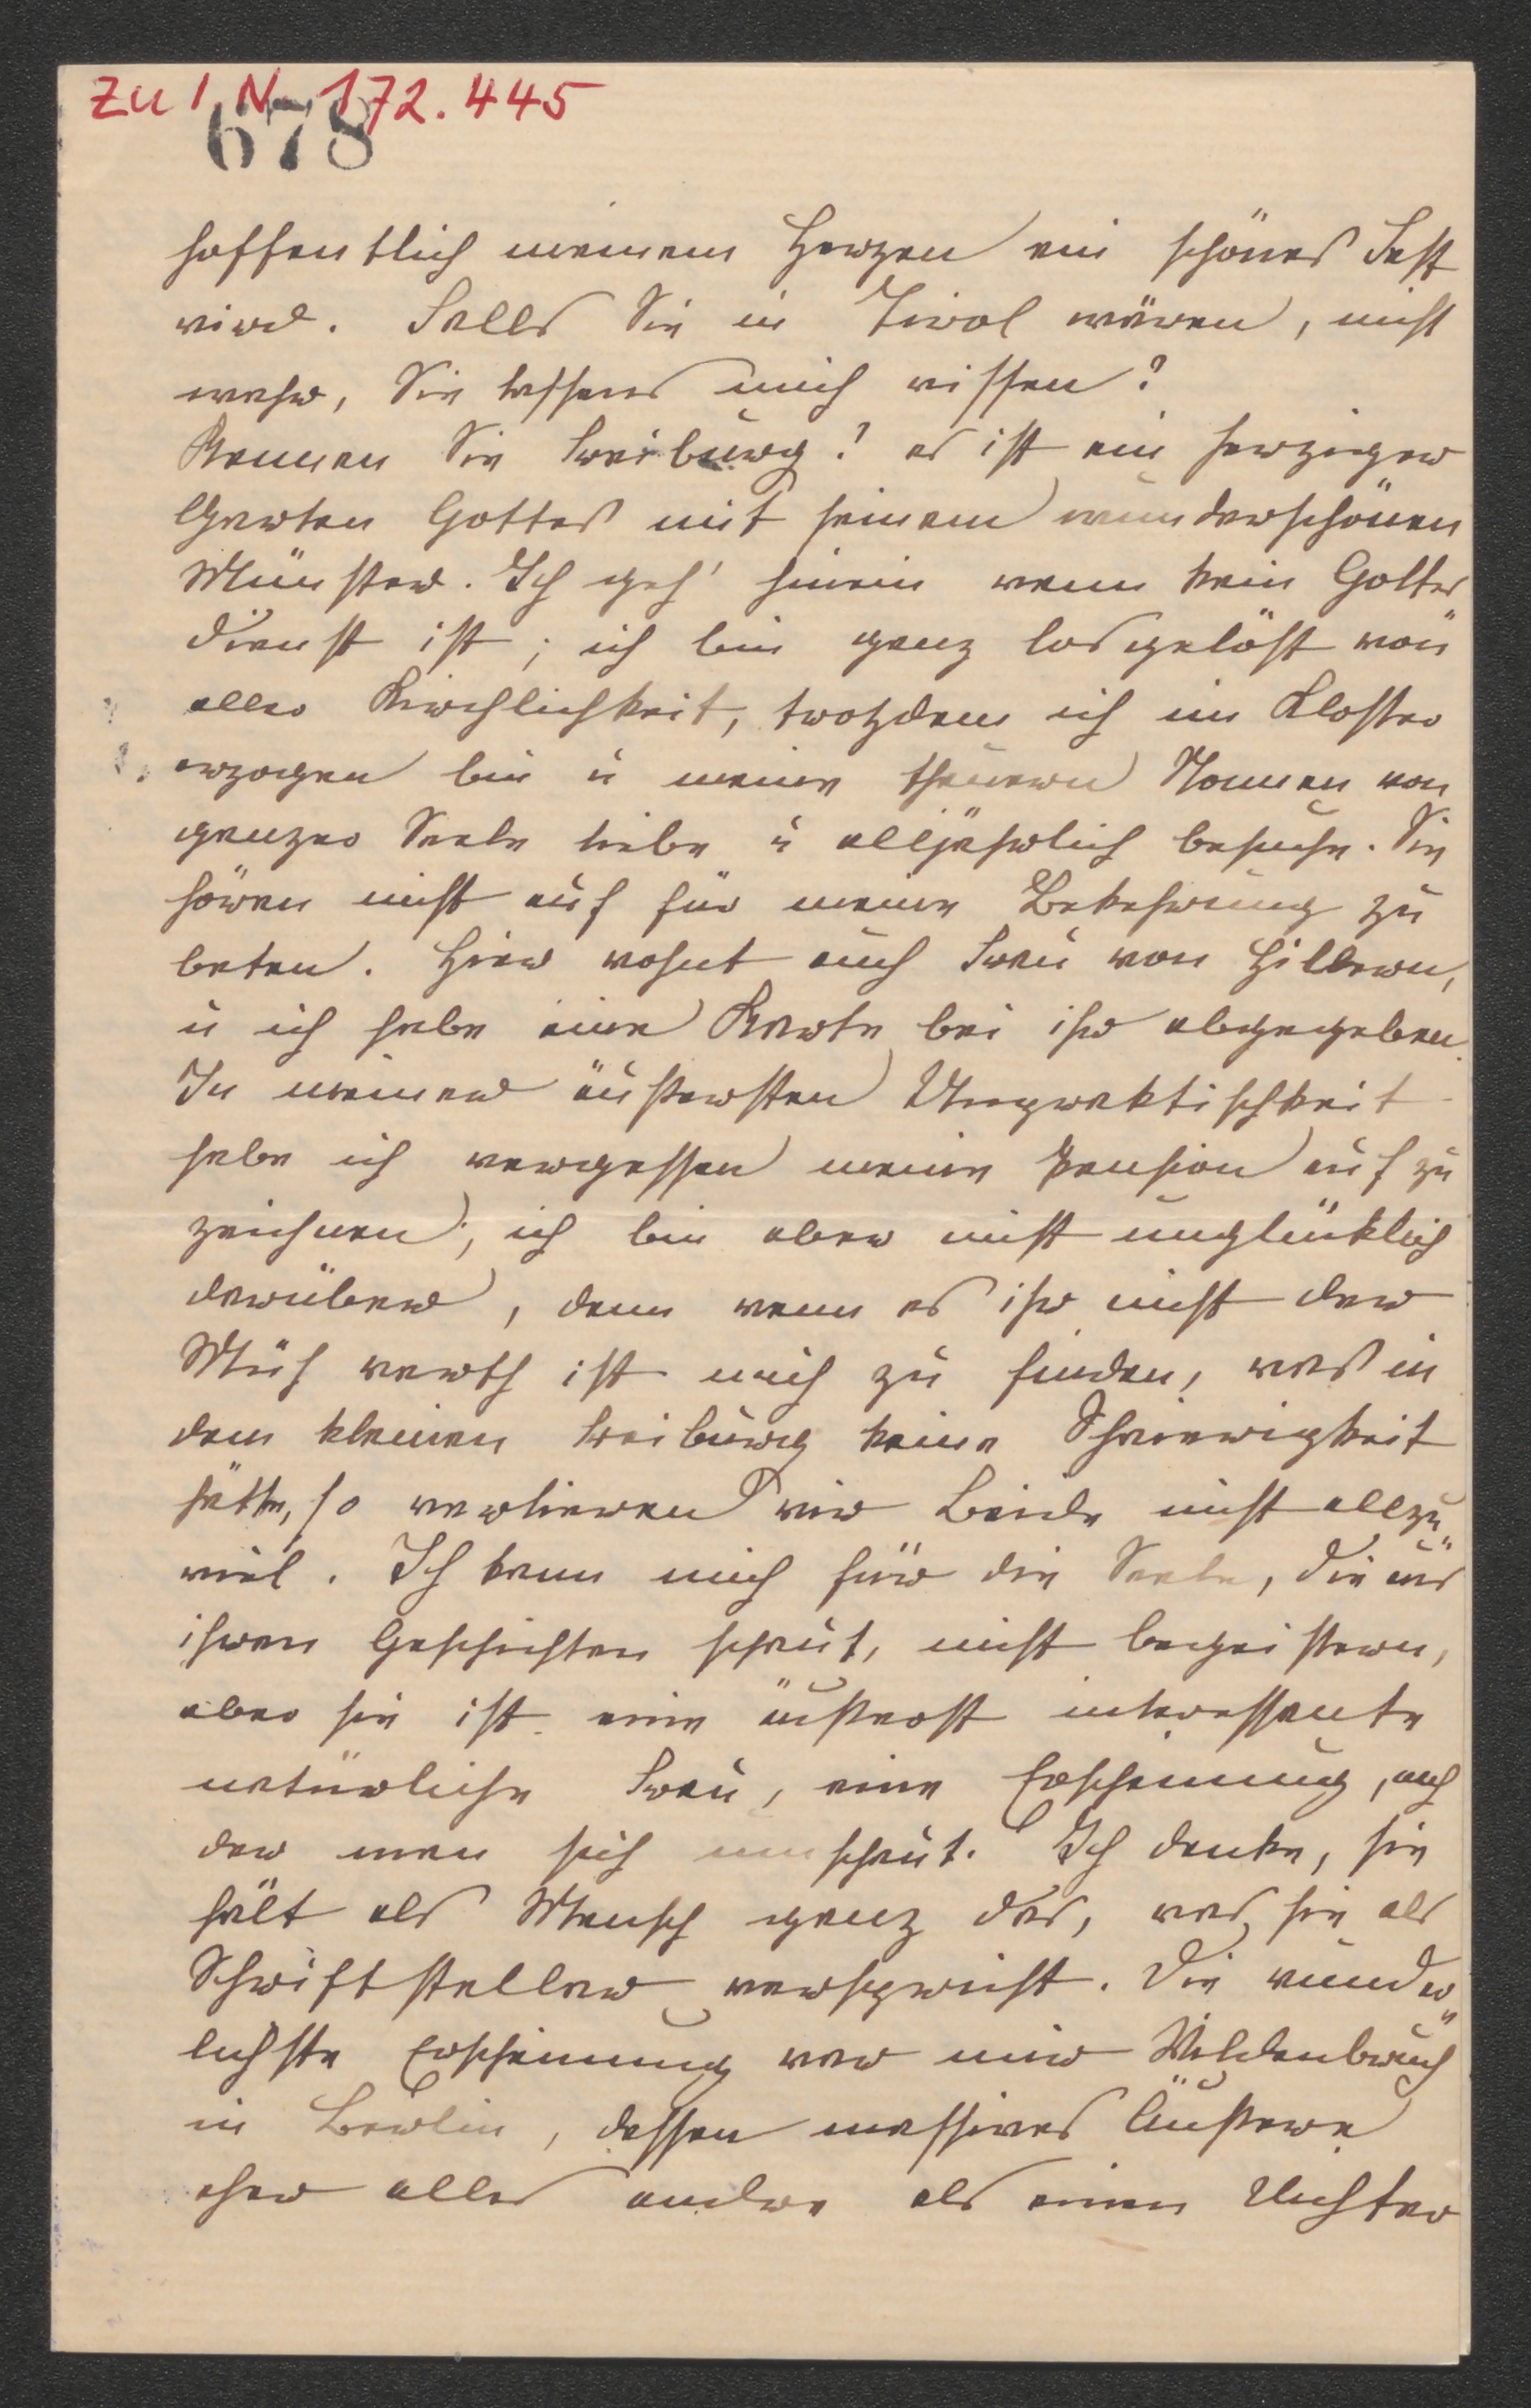 Zu I. N. 172.445
678
hoffentlich meinem Herzen ein schönes Fest
wird. Falls Sie in Tirol wären, nicht
wahr, Sie lassens mich wissen?
Kennen Sie Freiburg? es ist ein herziger
Garten Gottes mit seinem wunderschönen
Münster. Ich geh' hinein wenn kein Gottes
dienst ist; ich bin ganz losgelöst von
aller Kirchlichkeit, trotzdem ich im Kloster
erzogen bin u meine theuern Nonnen von
ganzer Seele liebe u alljährlich besuche. Sie
hören nicht auf für meine Bekehrung zu
beten. Hier wohnt auch Frau von Hillern,
u ich habe eine Karte bei ihr abgegeben.
In meiner äußersten Unpraktischkeit
habe ich vergessen meine Pension auf zu
zeichnen; ich bin aber nicht unglücklich
darüber, denn wenn es ihr nicht der
Müh werth ist mich zu finden, was in
dem kleinen Freiburg keine Schwierigkeit
hätte, so verlieren wir Beide nicht allzu„
viel. Ich kann mich für die Seele, die aus
ihren Geschichten schaut, nicht begeistern,
aber sie ist eine äußerst interessante
natürliche Frau, eine Erscheinung, nach
der man sich umschaut. Ich denke, sie
hält als Mensch ganz das, was sie als
Schriftsteller verspricht. Die wunder„
lichste Erscheinung war mir Wildenbruch
in Berlin, dessen massives Äußere
eher alles andre als einen Dichter